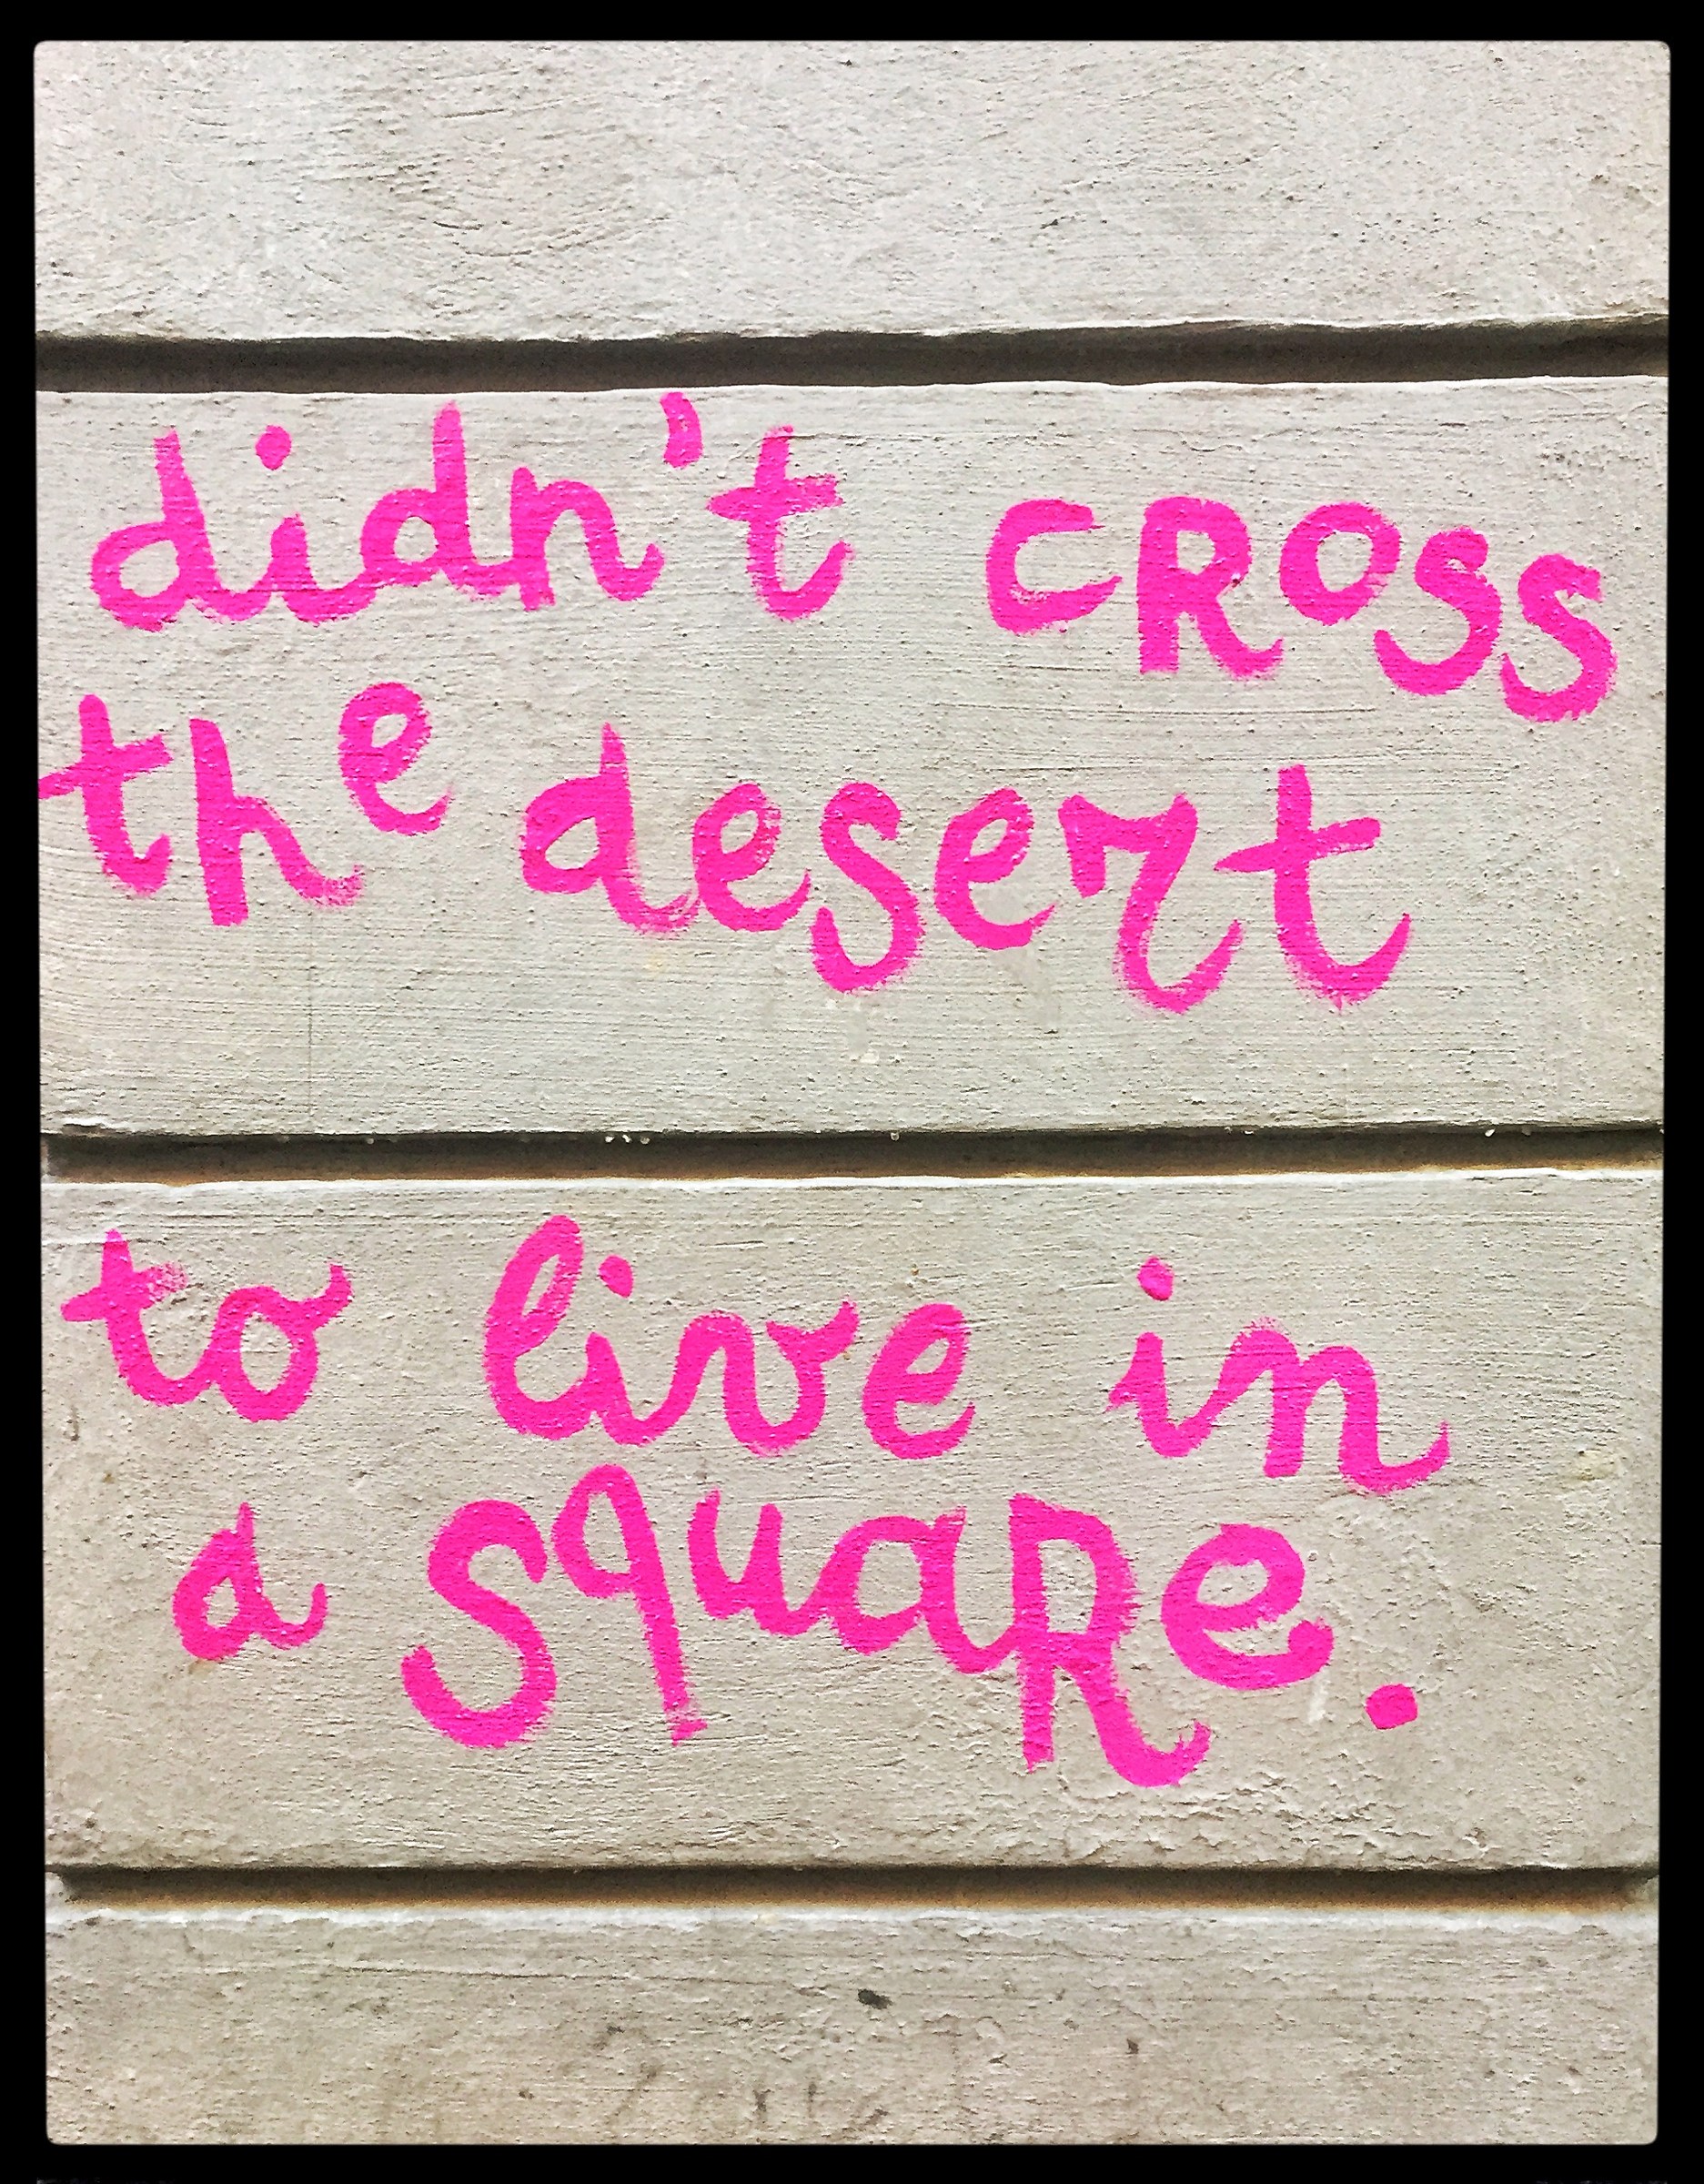 didn't cRoss
the desert
to live in
a squaRe.